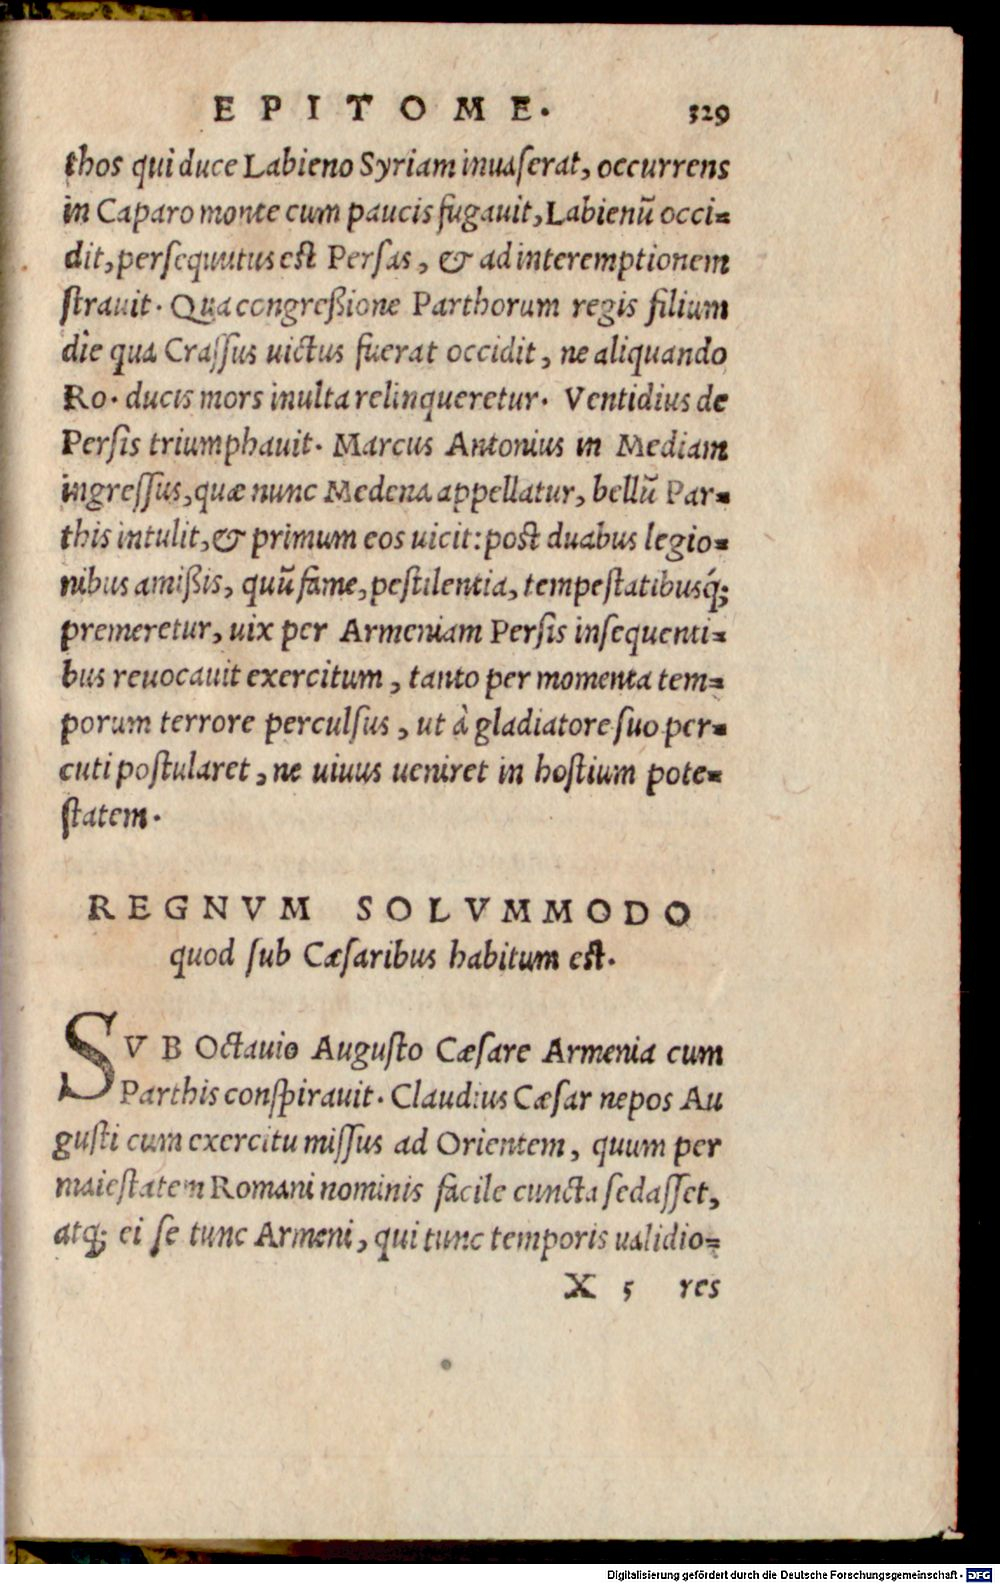 EPITOME. 329
thos qui duce Labieno Syriam inuaserat, occurrens
in Caparo monte cum paucis fugauit, Labienū occi=
dit, persequutus est Persas, & ad interemptionem
strauit. Qua congreßione Parthorum regis filium
die qua Crassus uictus fuerat occidit, ne aliquando
Ro. ducis mors inulta relinqueretur. Ventidius de
Persis triumphauit. Marcus Antonius in Mediam
ingressus, quæ nunc Medena appellatur, bellū Par=
this intulit, & primum eos uicit: post duabus legio=
nibus amißis, quū fame, pestilentia, tempestatibusq́;
premeretur, uix per Armeniam Persis insequenti=
bus reuocauit exercitum, tanto per momenta tem=
porum terrore perculsus, ut à gladiatore suo per=
cuti postularet, ne uiuus ueniret in hostium pote=
statem.
REGNVM SOLVMMODO
quod sub Cæsaribus habitum est.
SVB Octauio Augusto Cæsare Armenia cum
Parthis conspirauit. Claudius Cæsar nepos Au
gusti cum exercitu missus ad Orientem, quum per
maiestatem Romani nominis facile cuncta sedasset,
atq; ei se tunc Armeni, qui tunc temporis ualidio=
X 5 res
Digitalisierung gefördert durch die Deutsche Forschungsgemeinschaft - DFG